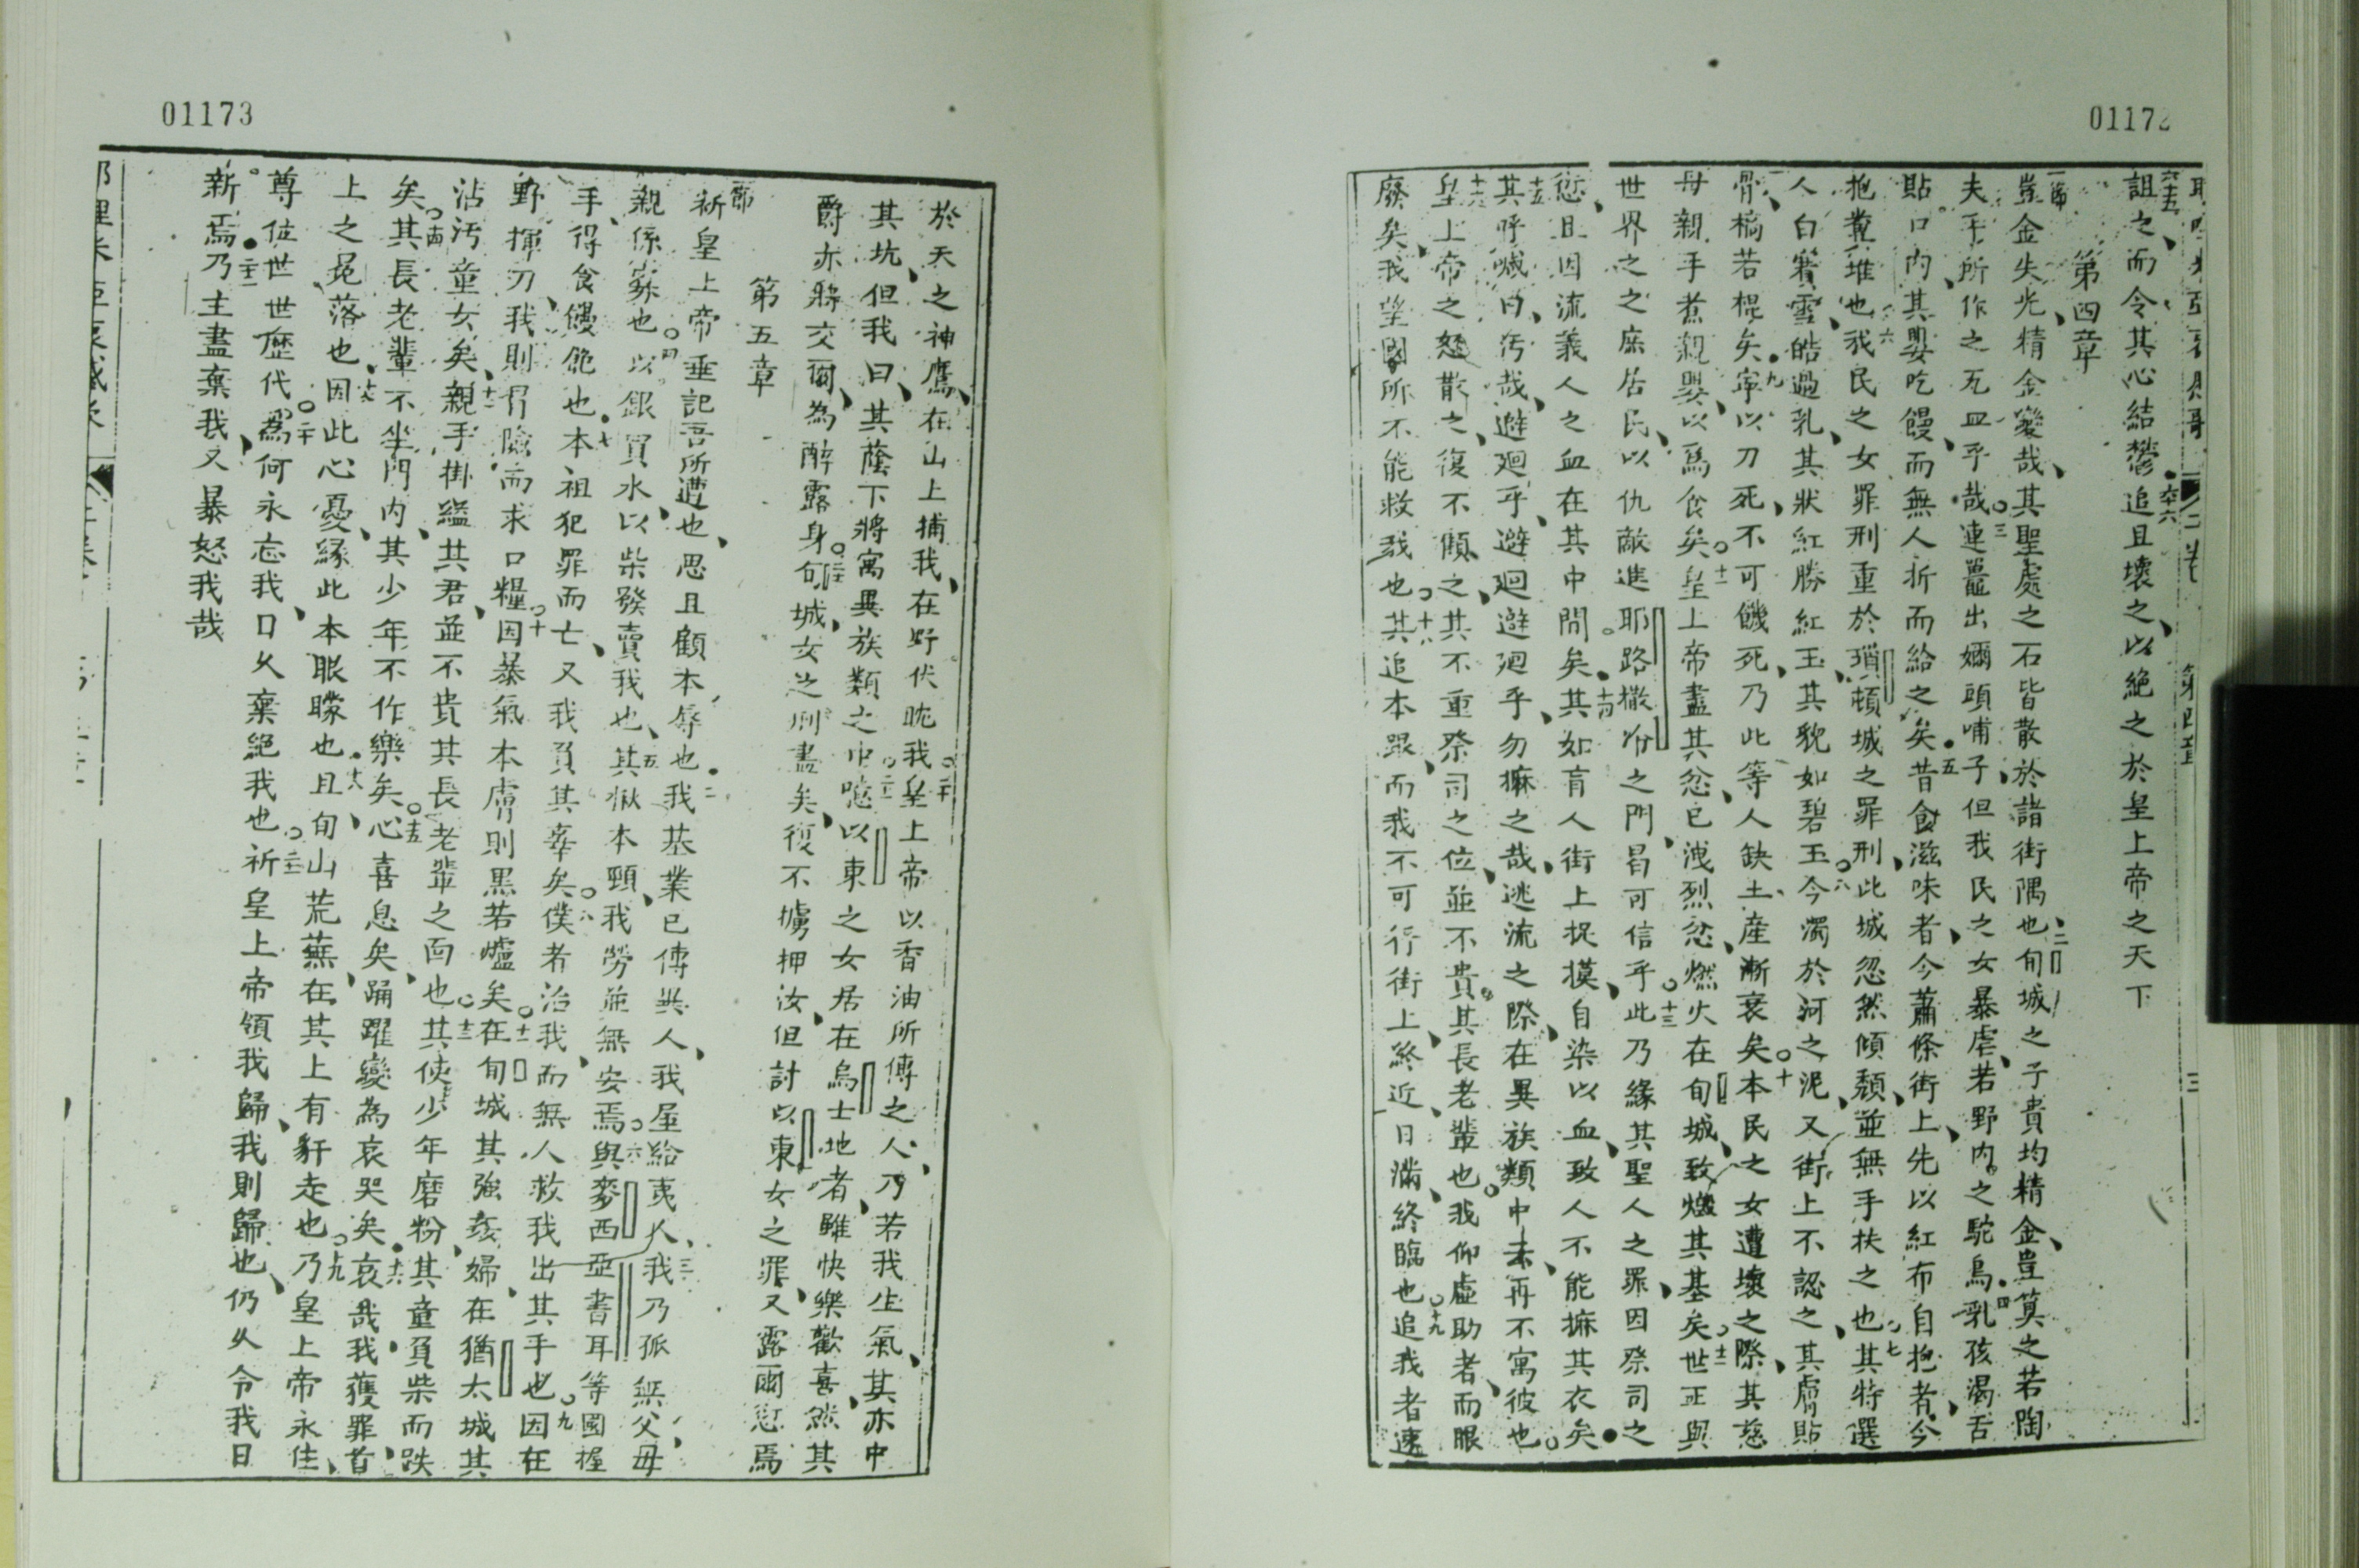 01172
詛之而令其心結鬱追且壞之以絕之於皇上帝之天下
第四章
豈金失光精金變哉其聖處之石皆散於諸街隅也旬城之子貴均精金豈算之若陶
夫手所作之瓦皿乎哉連鼉出嬭頭哺子但我民之女暴虐若野內之駝鳥乳孩渴舌
貼口內其嬰吃饅而無人折而給之矣昔食滋味者今蕭條街上先以紅布自抱者今
抱糞堆也我民之女罪刑重於瑣頓城之罪刑此城忽然傾頹並無手扶之也其特選
人白賽雪皓過乳其狀紅勝紅玉其貌如碧玉今濁於河之泥又街上不認之其膚貼
骨槁若棍矣寧以刀死不可饑死乃此等人缺土產漸衰矣本民之女遭壞之際其慈
母親手煮親嬰以為食矣皇上帝盡其忿已洩烈忿燃火在旬城致燬其基矣世王與
世界之之庶居民以仇敵進耶路撒冷之門曷可信乎此乃緣其聖人之罪因祭司之
愆且因流義人之血在其中間矣其如盲人街上捉摸自染以血致人不能摸其衣矣
其呼喊曰污哉避迴乎避迴避迴乎勿摸之哉逃流之際在異族類中未再不寓彼也
皇上帝之怒散之復不顧之其不重祭司之位並不貴其長老輩也我仰虛助者而眼
廢矣我望國所不能救我也其追本跟而我不可行街上終近日滿終臨也追我者速
01173
於天之神鷹在山上捕我在野伏眈我皇上帝以香油所傅之人乃若我生氣其亦中
其坑但我曰其蔭下將寓異族類之中噫以東之女居在烏士地者雖快樂歡喜然其
爵亦將交爾為醉露身旬城女之刑盡矣復不擄押汝但討以東女之罪又露爾愆焉
第五章
祈皇上帝垂記吾所遭也思且顧本辱也我基業已傳異人我屋給夷人我乃孤無父母
親係寡也以銀買水以柴發賣我也其楸本頸我勞並無安焉與麥西亞書耳等國握
手得食饅飽也本祖犯罪而亡又我負其辜矣僕者治我而無人救我出其手也因在
野揮刀我則冒險而求口糧因暴氣本膚則黑若爐矣在旬城其強姦婦在猶太城其
沾污童女矣親手掛縊其君並不貴其長老輩之面也其使少年磨粉其童負柴而跌
矣其長老輩不坐門內其少年不作樂矣心喜息矣踊躍變為哀哭矣哀哉我獲罪首
上之冕落也因此心憂緣此本眼矇也且旬山荒蕪在其上有豻走也乃皇上帝永住
尊位世世歷代為何永忘我曰久棄絕我也祈皇上帝領我歸我則歸也仍久令我日
新焉乃主盡棄我又暴怒我哉